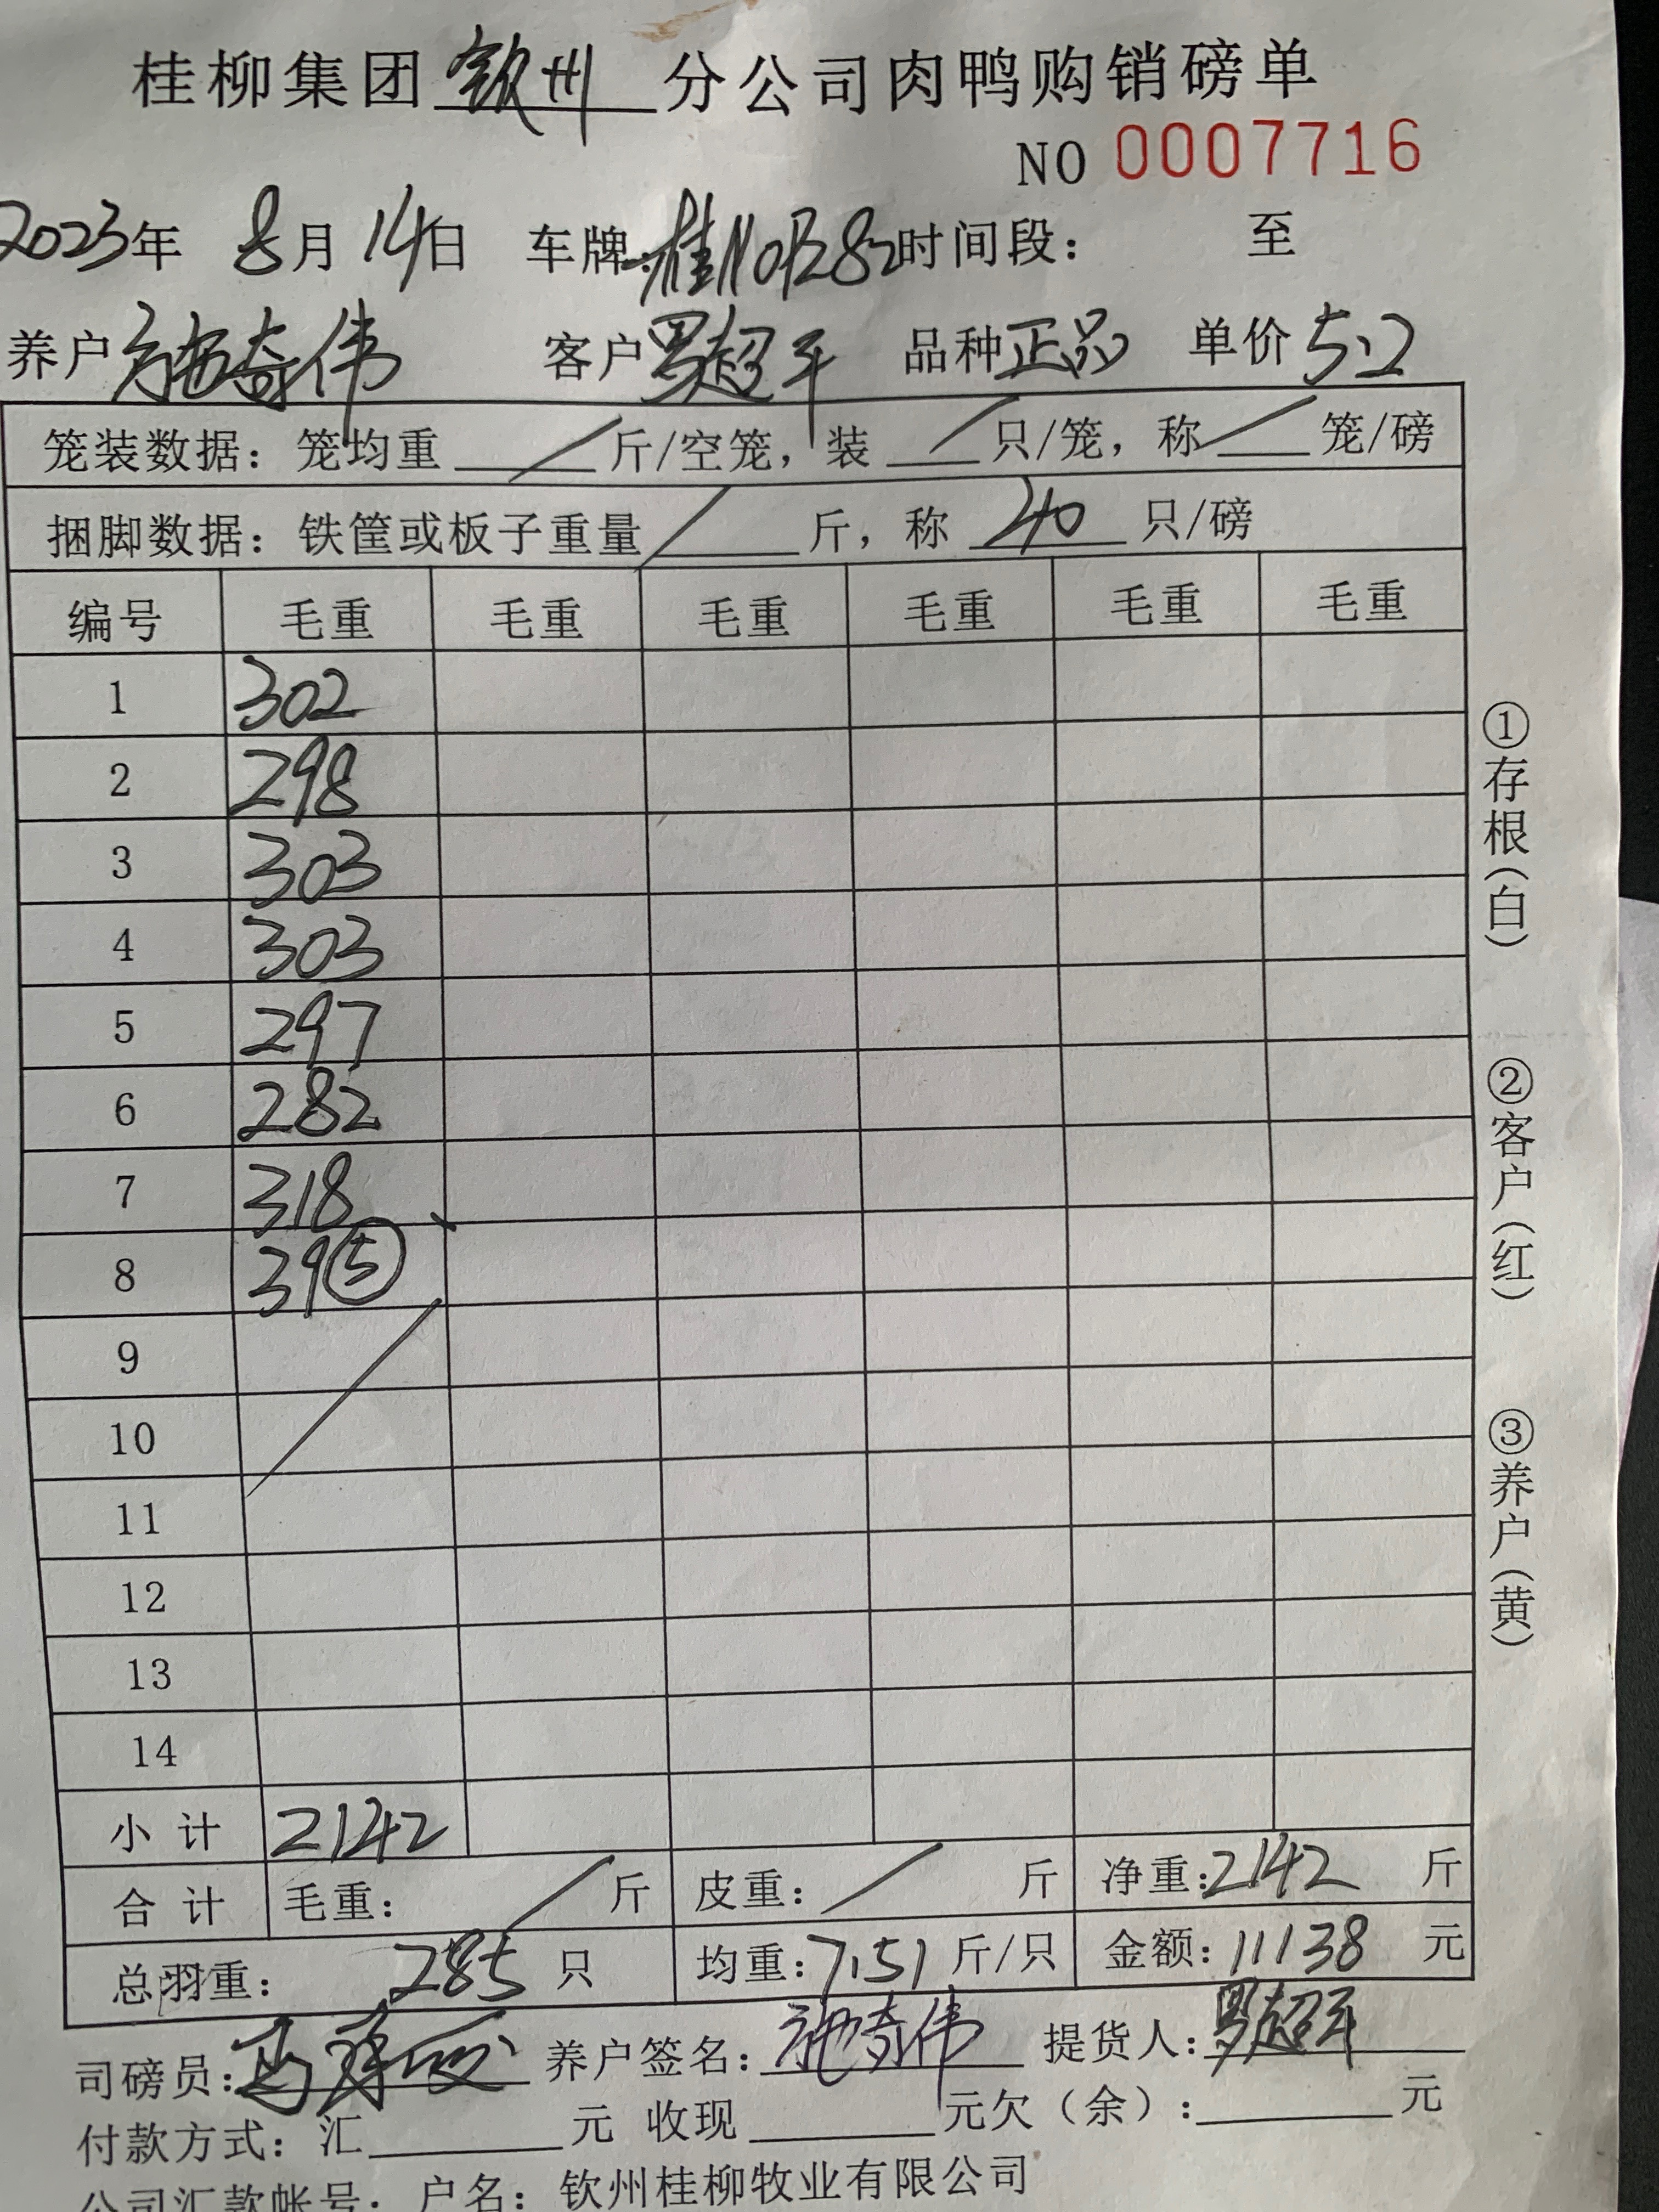 桂柳集团钦州分公司肉鸭购销磅单
NO 0007716
2023年 8月14日 车牌: 时间段: 至
养户施奇伟 客户罗超平 品种正品 单价5.2
笼装数据: 笼均重/斤/空笼, 装/只/笼, 称/笼/磅
捆脚数据: 铁筐或板子重量/斤, 称40只/磅
编号 毛重 毛重 毛重 毛重 毛重 毛重
1 302
2 298
3 303
4 303
5 297
6 282
7 318
8 39⑤
9
10
11
12
13
14
小计 2142
合计 毛重: / 斤 皮重: / 斤 净重:2142 斤
总羽重: 285 只 均重:7.51 斤/只 金额:11138 元
司磅员: 养户签名:施奇伟 提货人:罗超平
付款方式: 汇 元 收现 元欠(余): 元
公司汇款帐号: 户名: 钦州桂柳牧业有限公司
①存根(白)
②客户(红)
③养户(黄)